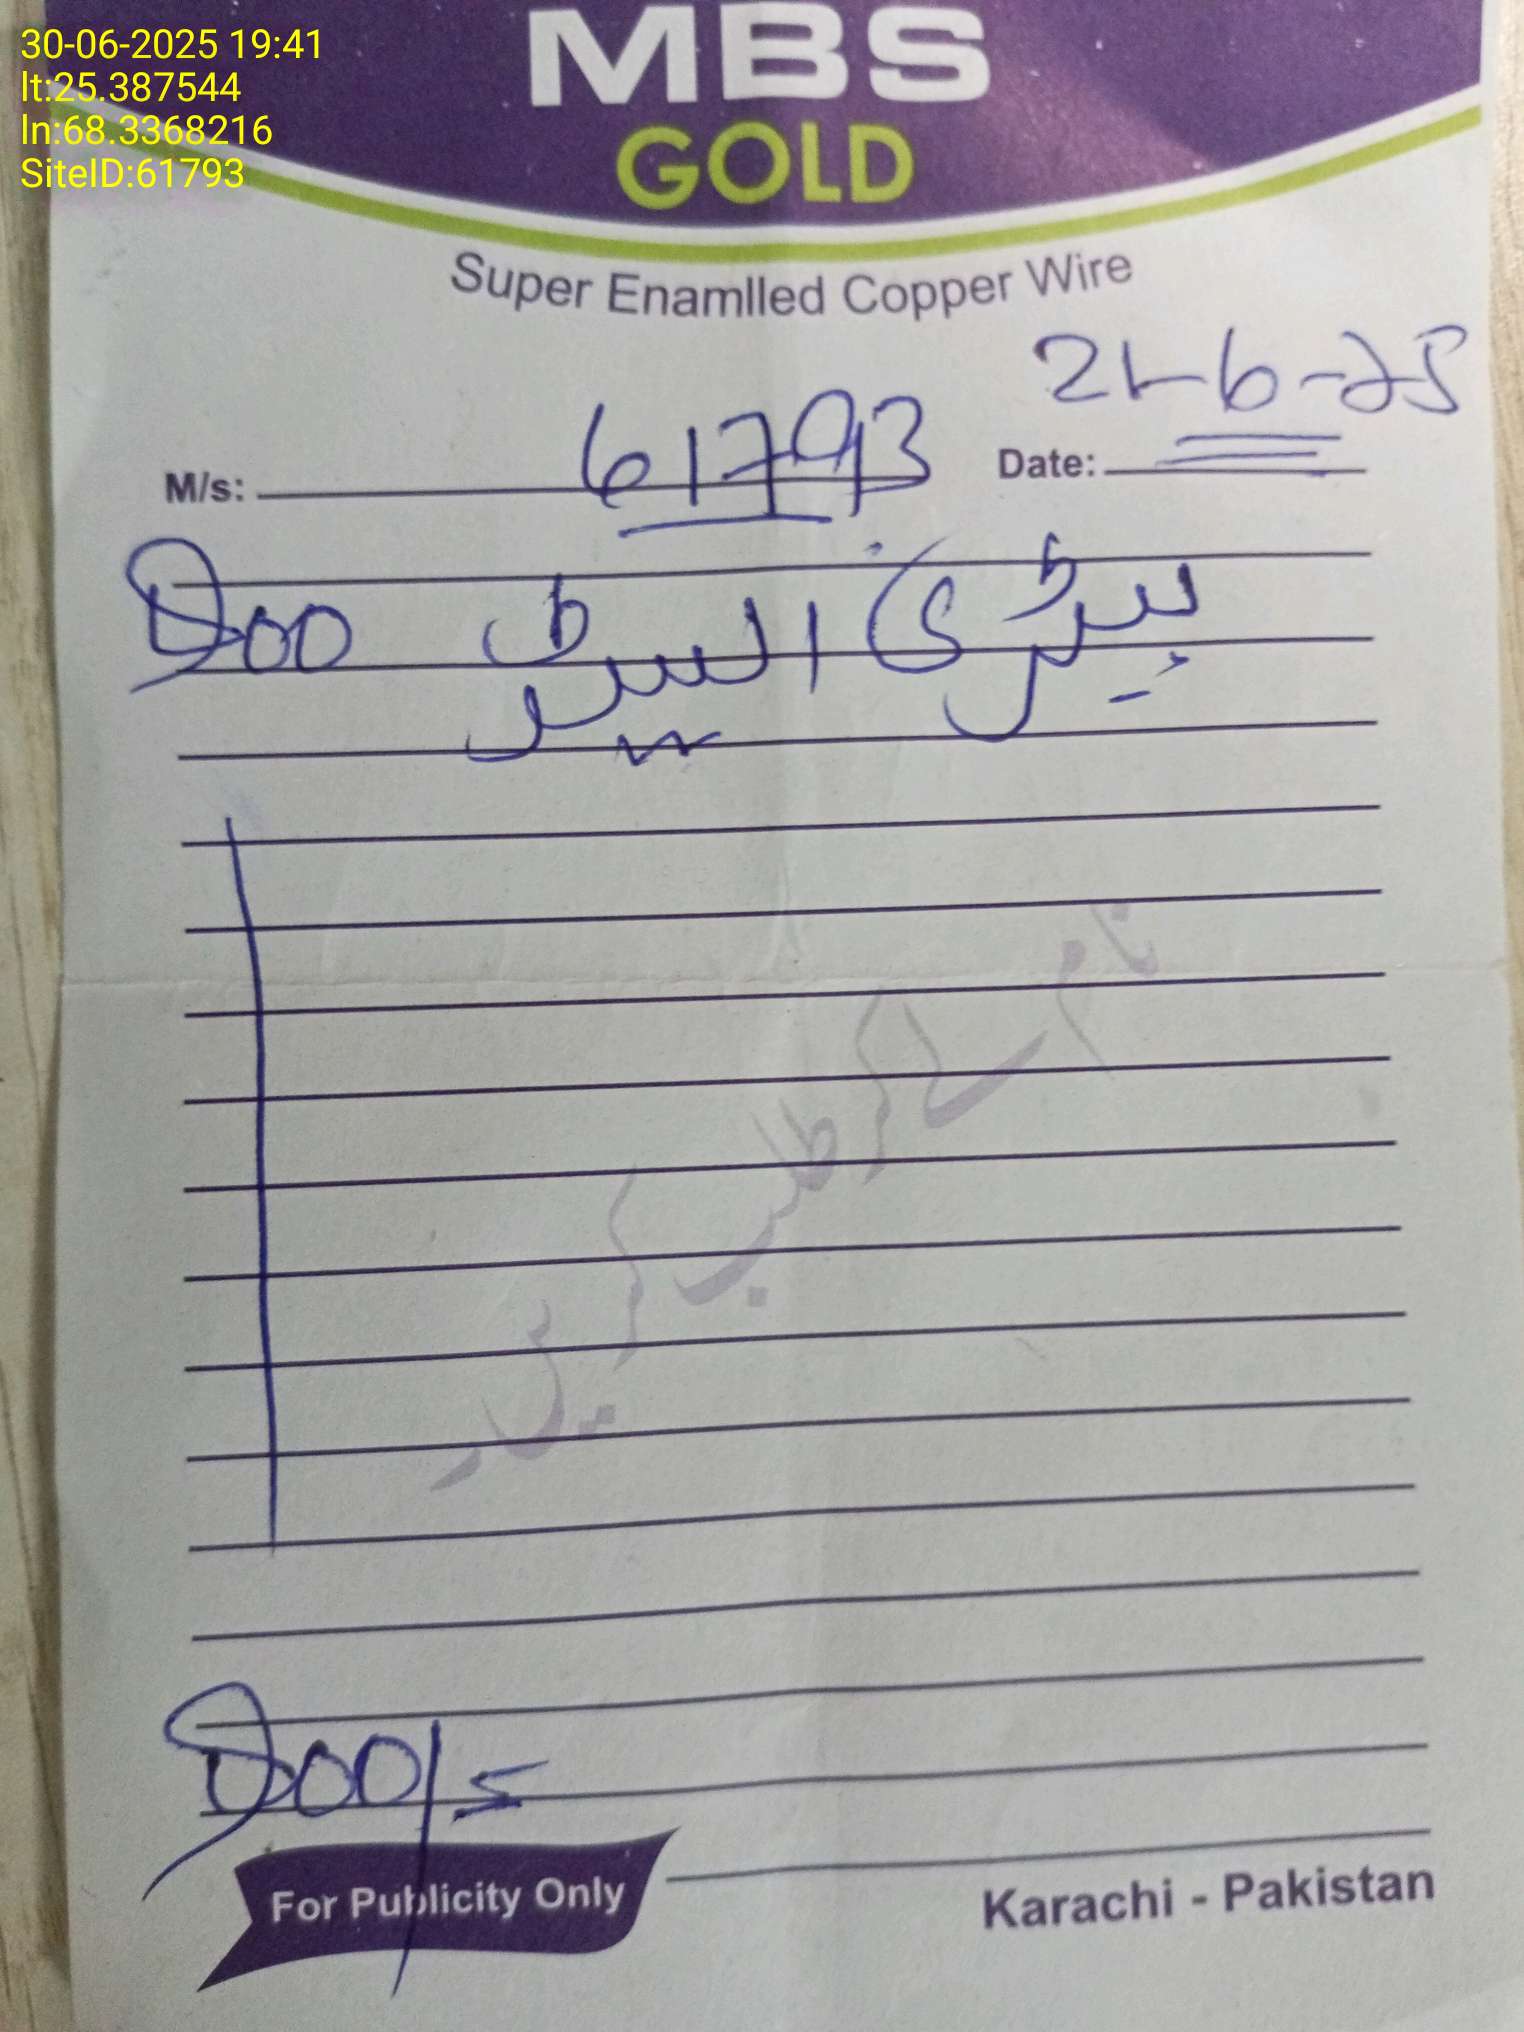 30-06-2025 19:41
lt:25.387544
ln:68.3368216
SiteID:61793
MBS
GOLD
Super Enamlled Copper Wire
21-6-25
M/s: 61793 Date:
بیٹری
نام لے کر طلب کریں۔
For Publicity Only
Karachi - Pakistan